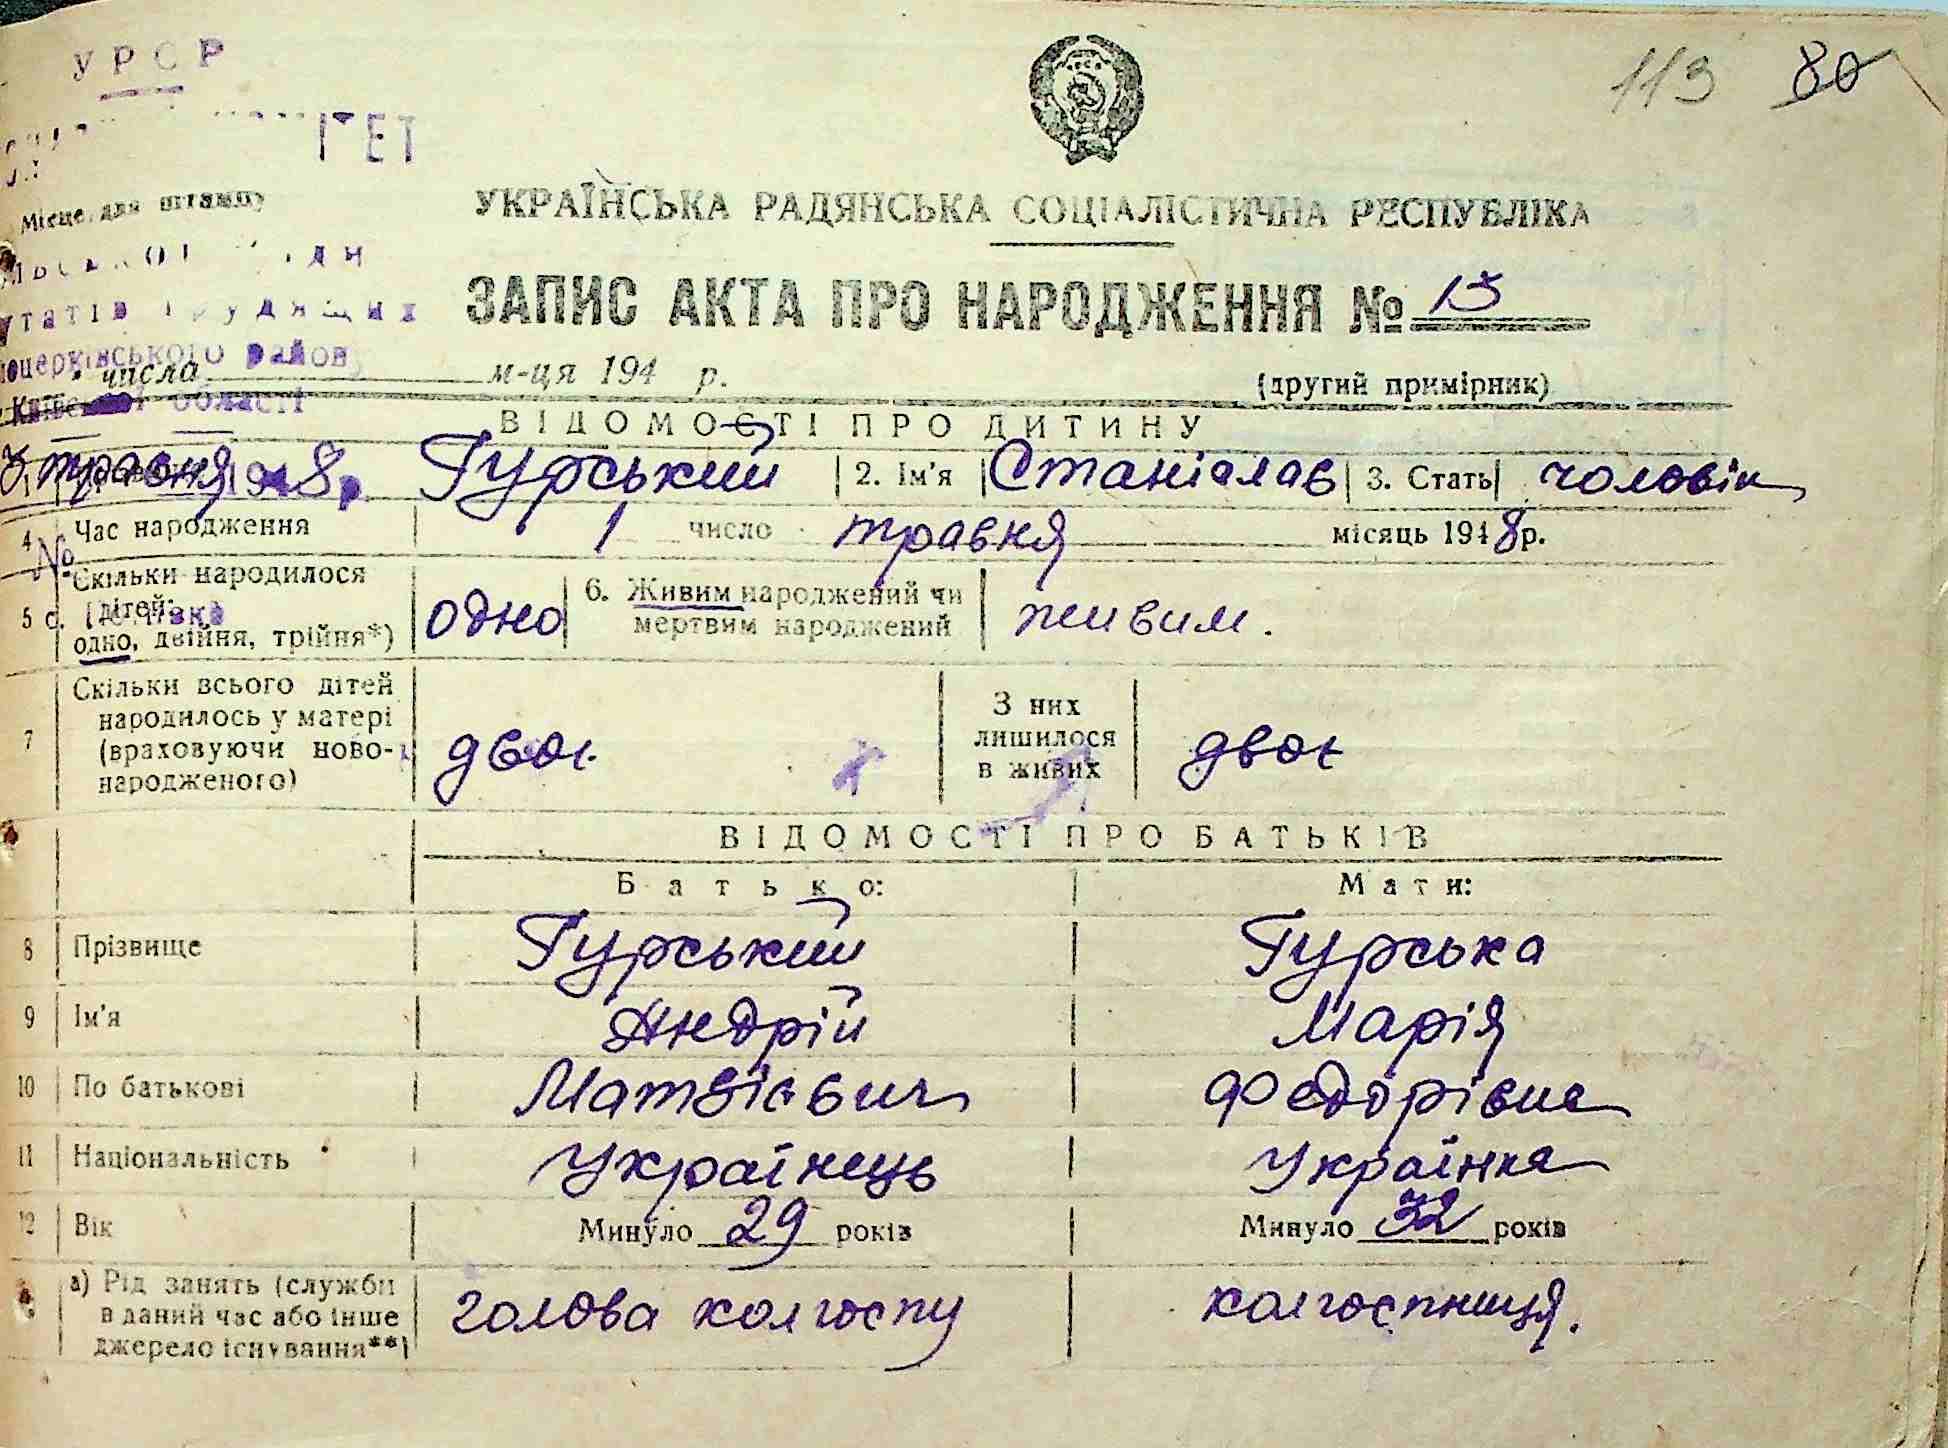 УРСР
113 80
Місце для штампу
УКРАЇНСЬКА РАДЯНСЬКА СОЦІАЛІСТИЧНА РЕСПУБЛІКА
утатів Трудящих
ЗАПИС АКТА ПРО НАРОДЖЕННЯ № 13
оцерківського району
числа м-ця 194 р.
(другий примірник)
Київської області
ВІДОМОСТІ ПРО ДИТИНУ
травня 1948 р.
Гурський 2. Ім'я Станіслав 3. Стать чоловік
4 Час народження 1 число травня місяць 1948 р.
№
5 Скільки народилося дітей:
одно, двійня, трійня*) одно 6. Живим народжений чи мертвим народжений живим.
7 Скільки всього дітей народилось у матері (враховуючи ново-народженого) двоє З них лишилося в живих двоє
ВІДОМОСТІ ПРО БАТЬКІВ
Батько: Мати:
8 Прізвище Гурський Гурська
9 Ім'я Андрій Марія
10 По батькові Матвієвич Федорівна
11 Національність Українець Українка
12 Вік Минуло 29 років Минуло 32 років
а) Рід занять (служби в даний час або інше джерело існування**) голова колгоспу колгоспниця.